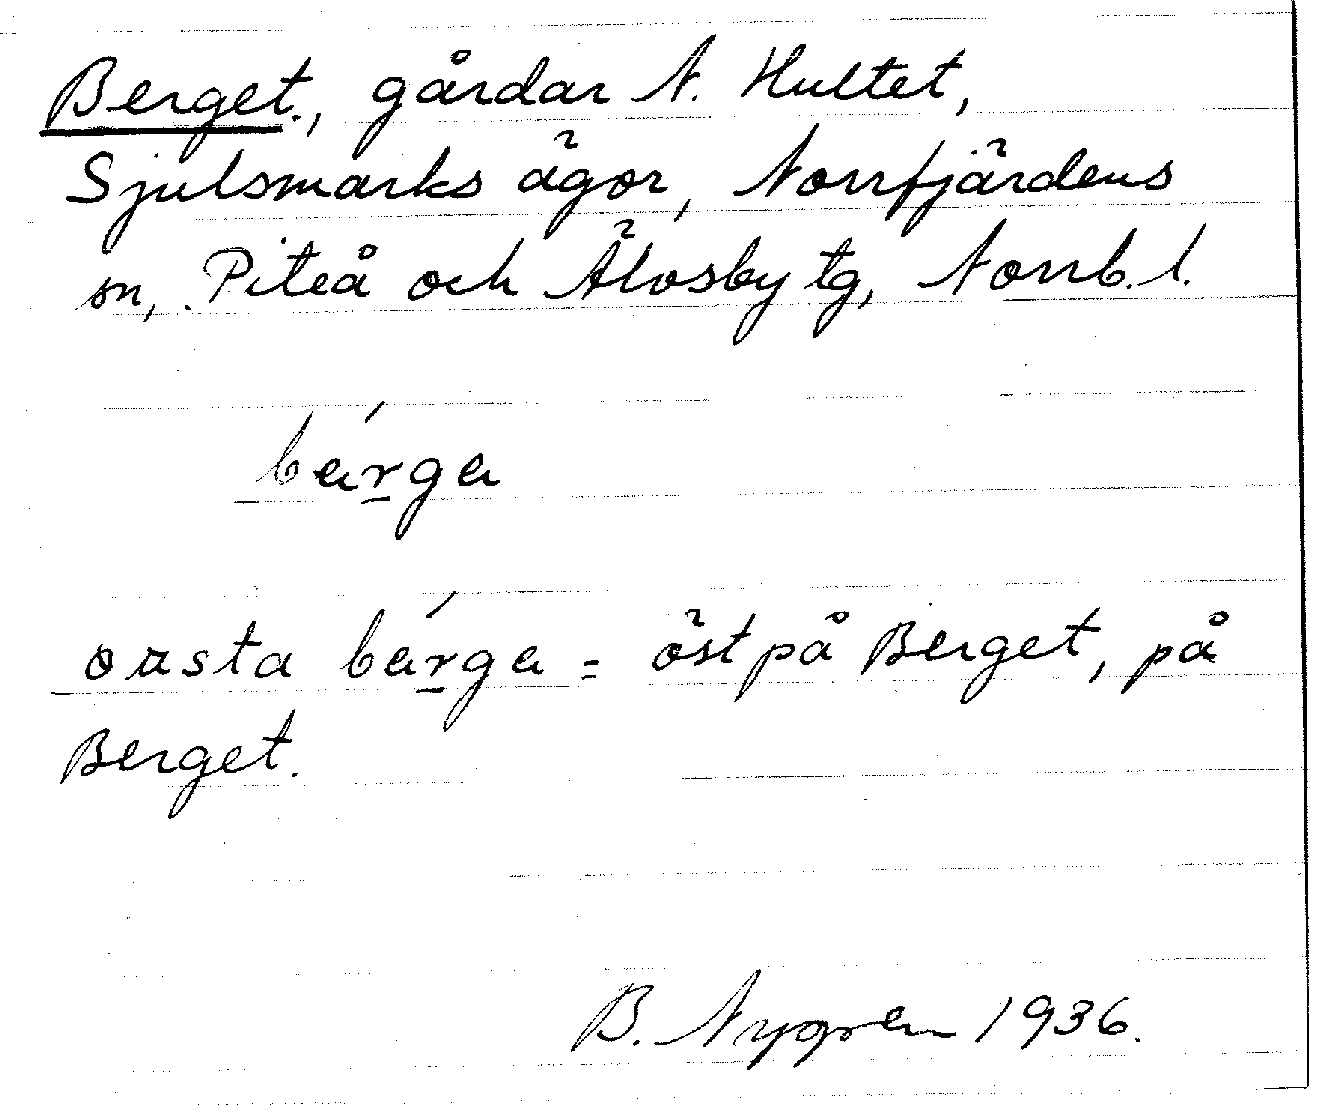 Berget., gårdar N. Hultet,
Sjulsmarks ägor, Norrfjärdens
sn, Piteå och Älvsby tg, Norrb. l.
bárga
oasta bárga = öst på Berget, på
Berget.
B. Nygren 1936.